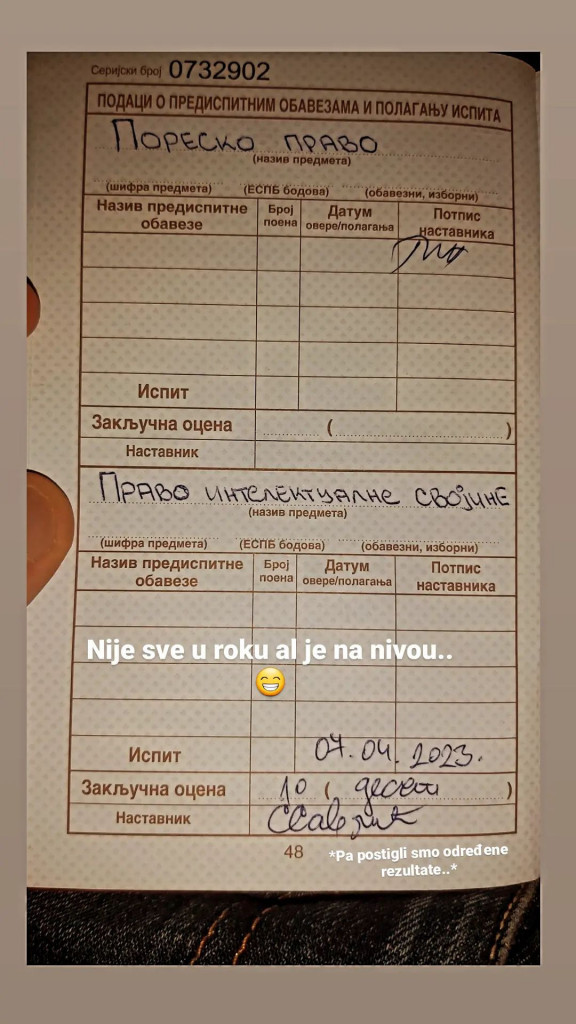 Серијски број 0732902
ПОДАЦИ О ПРЕДИСПИТНИМ ОБАВЕЗАМА И ПОЛАГАЊУ ИСПИТА
ПОРЕСКО ПРАВО
(назив предмета)
(шифра предмета) (ЕСПБ бодова) (обавезни, изборни)
Назив предиспитне обавезе Број поена Датум овере/полагања Потпис наставника
Испит
Закључна оцена ( )
Наставник
ПРАВО ИНТЕЛЕКТУАЛНЕ СВОЈИНЕ
(назив предмета)
(шифра предмета) (ЕСПБ бодова) (обавезни, изборни)
Назив предиспитне обавезе Број поена Датум овере/полагања Потпис наставника
Nije sve u roku al je na nivou..
😁
Испит 07.04.2023.
Закључна оцена 10 ( десет )
Наставник
48
*Pa postigli smo određene
rezultate..*